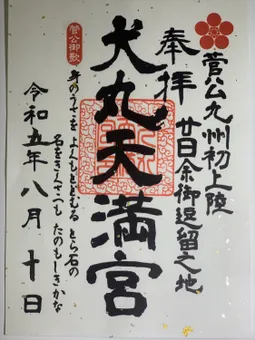 菅公九州初上陸
廿日余御逗留之地
奉拝
犬丸天満宮
菅公御歌
身のうさを よんもともむる とら石の
名をきんさへも たのもしきかな
令和五年八月十日